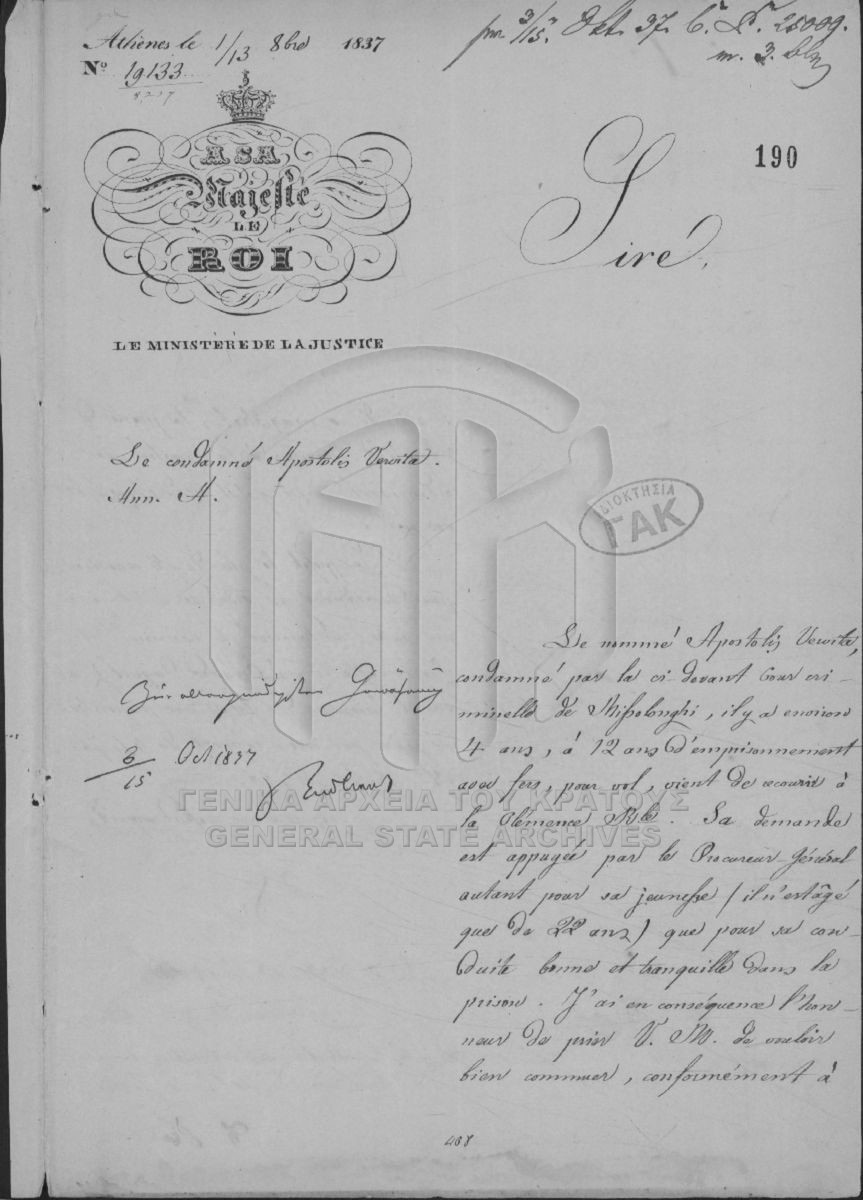 Athènes le 1/13 8bre 1837
No 19133
pr. 3/15 Okt. 37.
A SA
Majesté
LE
ROI
190
Sire,
LE MINISTÈRE DE LA JUSTICE
Le condamné Apostolis Vervita.
Ann. A.
ΙΔΙΟΚΤΗΣΙΑ
ΓΑΚ
Le nommé Apostolis Vervita,
condamné par la ci-devant Cour cri-
minelle de Missolonghi, il y a environ
4 ans, à 12 ans d'emprisonnement
avec fers, pour vol, vient de recourir à
la Clémence Rle. Sa demande
est appuyée par le Procureur-Général
autant pour sa jeunesse (il n'est âgé
que de 22 ans) que pour sa con-
duite bonne et tranquille dans la
prison. J'ai en conséquence l'hon-
neur de prier V. M. de vouloir
bien commuer, conformément à
3/15 Oct 1837
ΓΕΝΙΚΑ ΑΡΧΕΙΑ ΤΟΥ ΚΡΑΤΟΥΣ
GENERAL STATE ARCHIVES
468